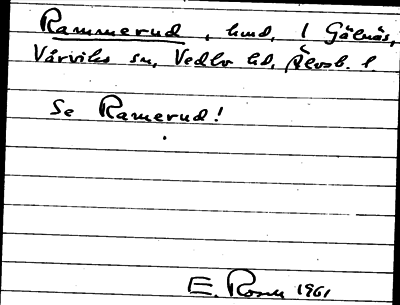 Rammerud, hmd, 1 Gälnäs,
Vårviks sn, Vedbo hd, Älvsb. l
Se Ramerud!
E. Rosén 1961